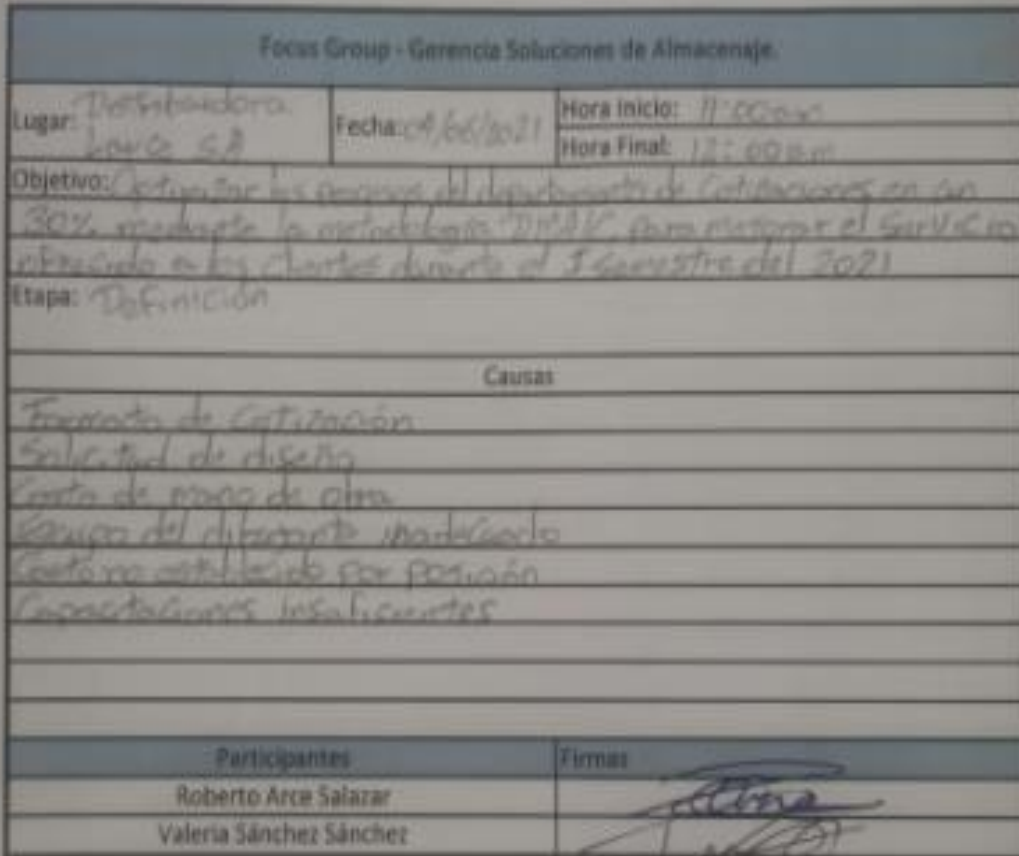 Focus Group - Gerencia Soluciones de Almacenaje.
Lugar: Distribuidora
S.A
Fecha: /06/2021
Hora Inicio: 11:00am
Hora Final: 12:00 p.m
Objetivo: Optimizar los procesos del departamento de Cotizaciones en un
30% mediante la metodología DMAIC para mejorar el Servicio
ofrecido a los Clientes durante el I Semestre del 2021
Etapa: Definición
Causas
Formato de Cotización
Solicitud de diseño
Costo de mano de obra
Equipo del dibujante inadecuado
Costo no establecido por posición
Capacitaciones insuficientes
Participantes
Firmas
Roberto Arce Salazar
Valeria Sánchez Sánchez